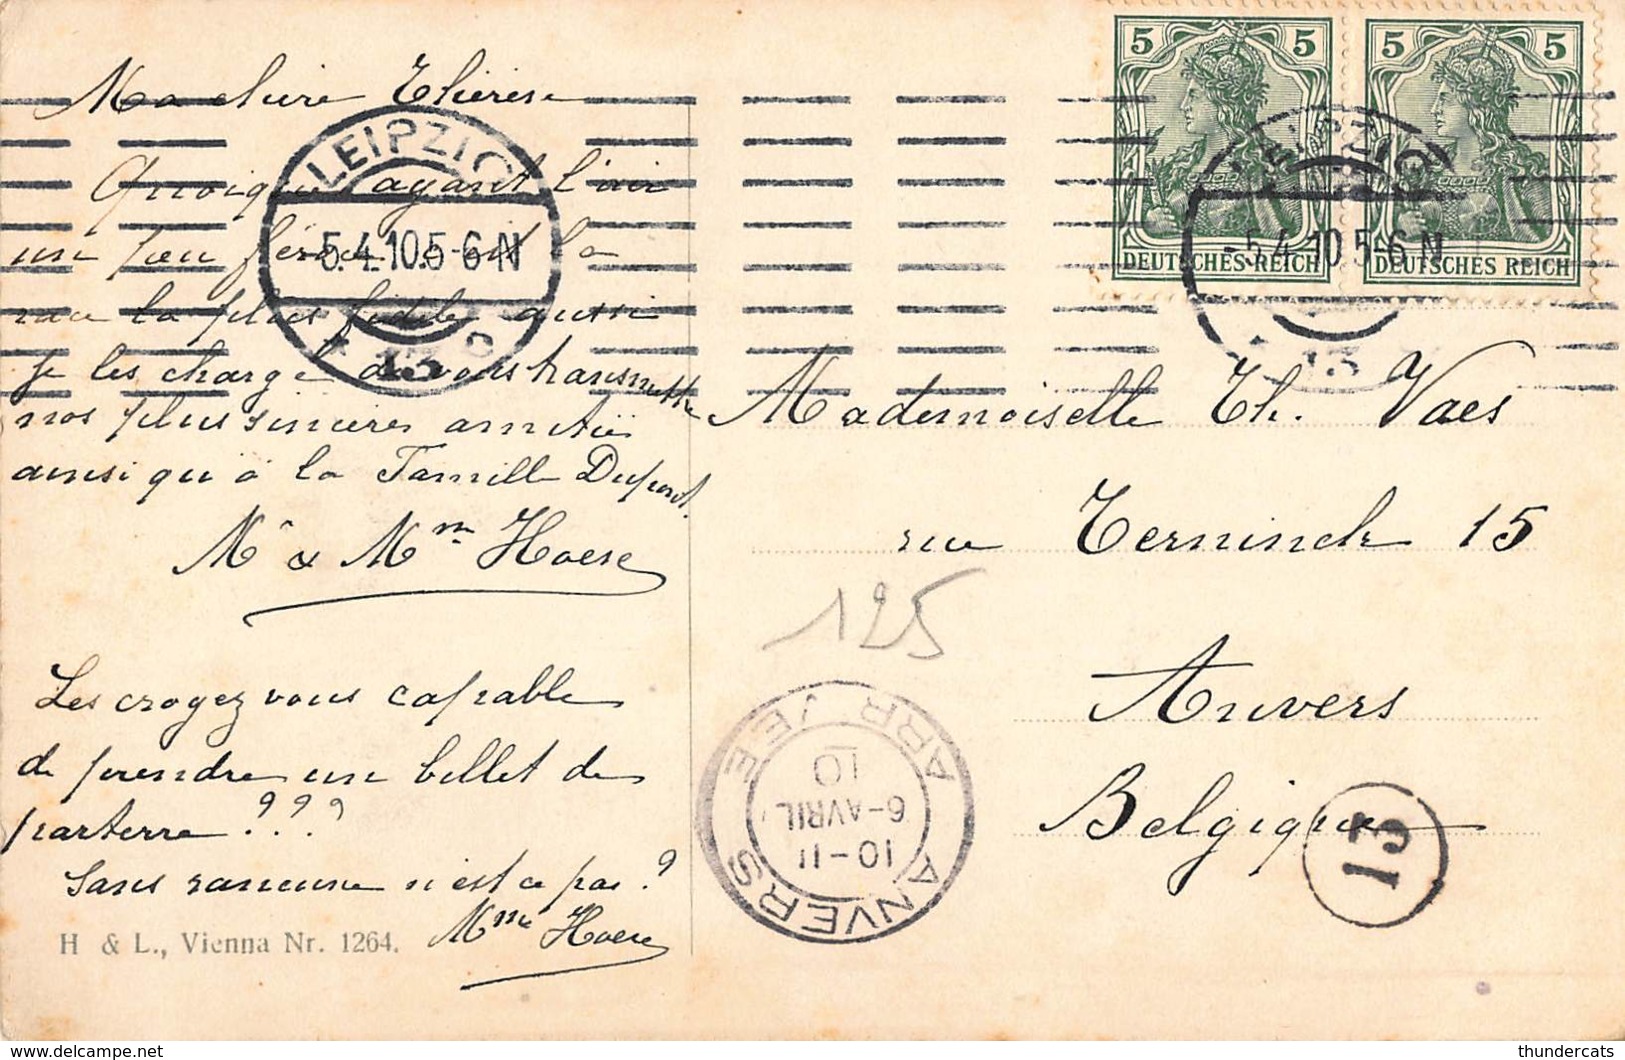 Ma chère Thérèse
Quoique ayant l'air
un peu féroce c'est la
race la plus fidèle aussi
je les charge de vous transmettre
nos plus sincères amitiés
ainsi qu'à la Famille Dupont.
Mr & Mme Hoese
Les croyez vous capable
de prendre un billet de
parterre ???
Sans rancune n'est ce pas ?
Mme Hoese
H & L., Vienna Nr. 1264.
LEIPZIG
-5.4.10.5-6 N
* 13
5 5
DEUTSCHES REICH
5 5
DEUTSCHES REICH
LEIPZIG
-5.4.10 5-6 N
13
Mademoiselle Th. Vaes
rue Terninck 15
Anvers
Belgique
125
ANVERS
10-11
6-AVRIL
10
ARRIVEE
13
thundercats